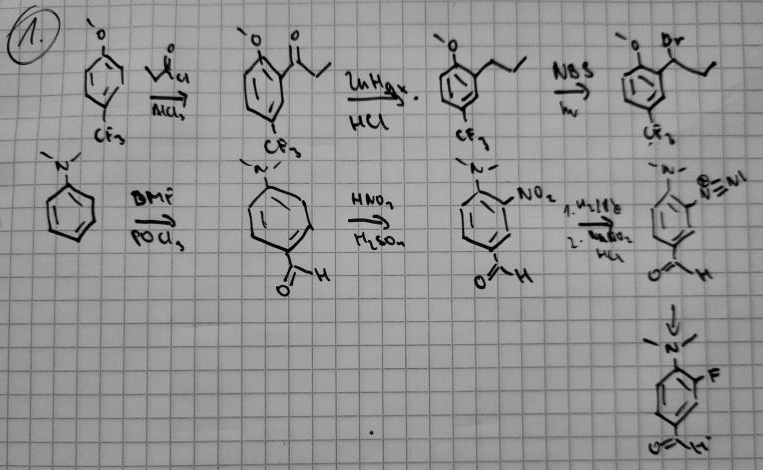 1.
O O Cl AlCl3 CF3
O O ZnHgx HCl CF3
O NBS hν CF3
O Br CF3
N DMF POCl3
N HNO3 H2SO4 O H
N NO2 1. H2/Pd 2. NaNO2 HCl O H
N ⊕ N≡N O H
N F O H